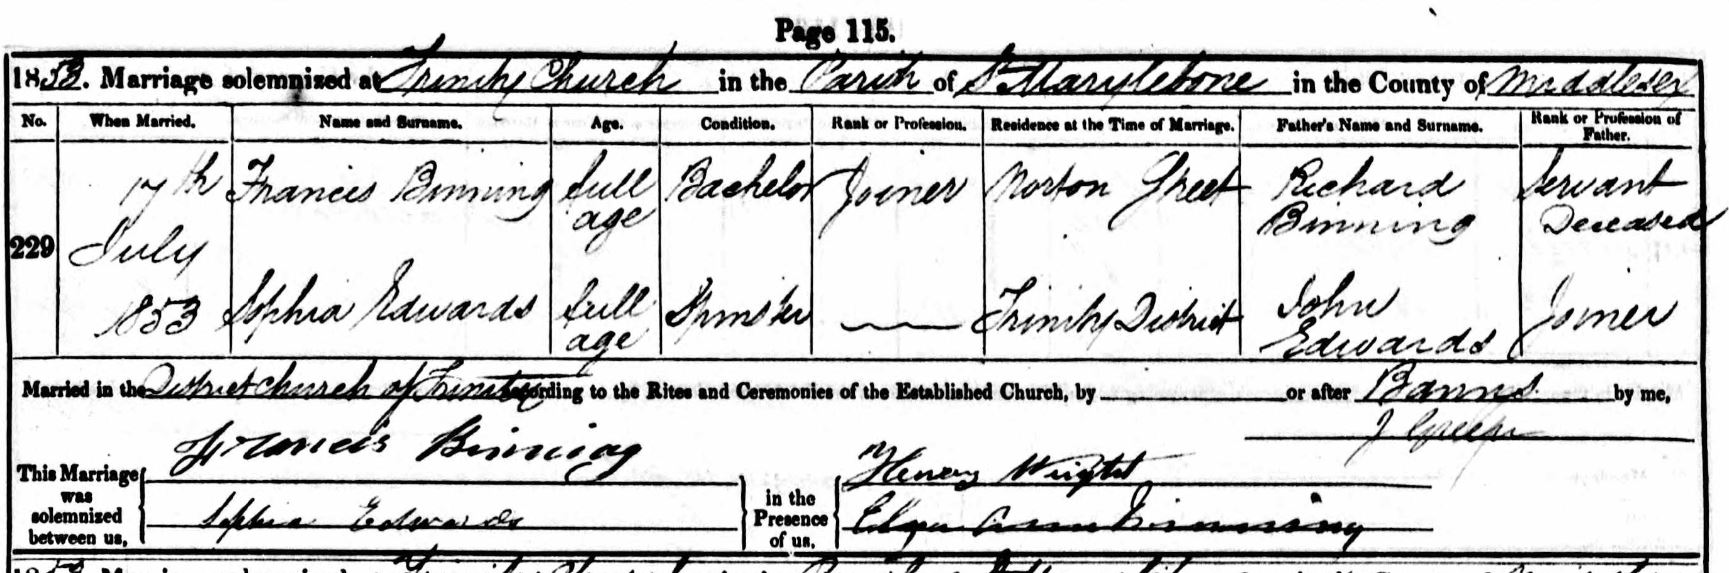 Page 115.
1853. Marriage solemnized at Trinity Church in the Parish of St Marylebone in the County of Middlesex
No. When Married. Name and Surname. Age. Condition. Rank or Profession. Residence at the Time of Marriage. Father's Name and Surname. Rank or Profession of Father.
229
17th July 1853
Francis Binning full age Bachelor Joiner Norton Street Richard Binning Servant Deceased
Sophia Edwards full age Spinster Trinity District John Edwards Joiner
Married in the District church of Trinity according to the Rites and Ceremonies of the Established Church, by or after Banns by me,
J
This Marriage was solemnized between us,
Francis Binning
Sophia Edwards
in the Presence of us,
Henry Wright
Ann Binning